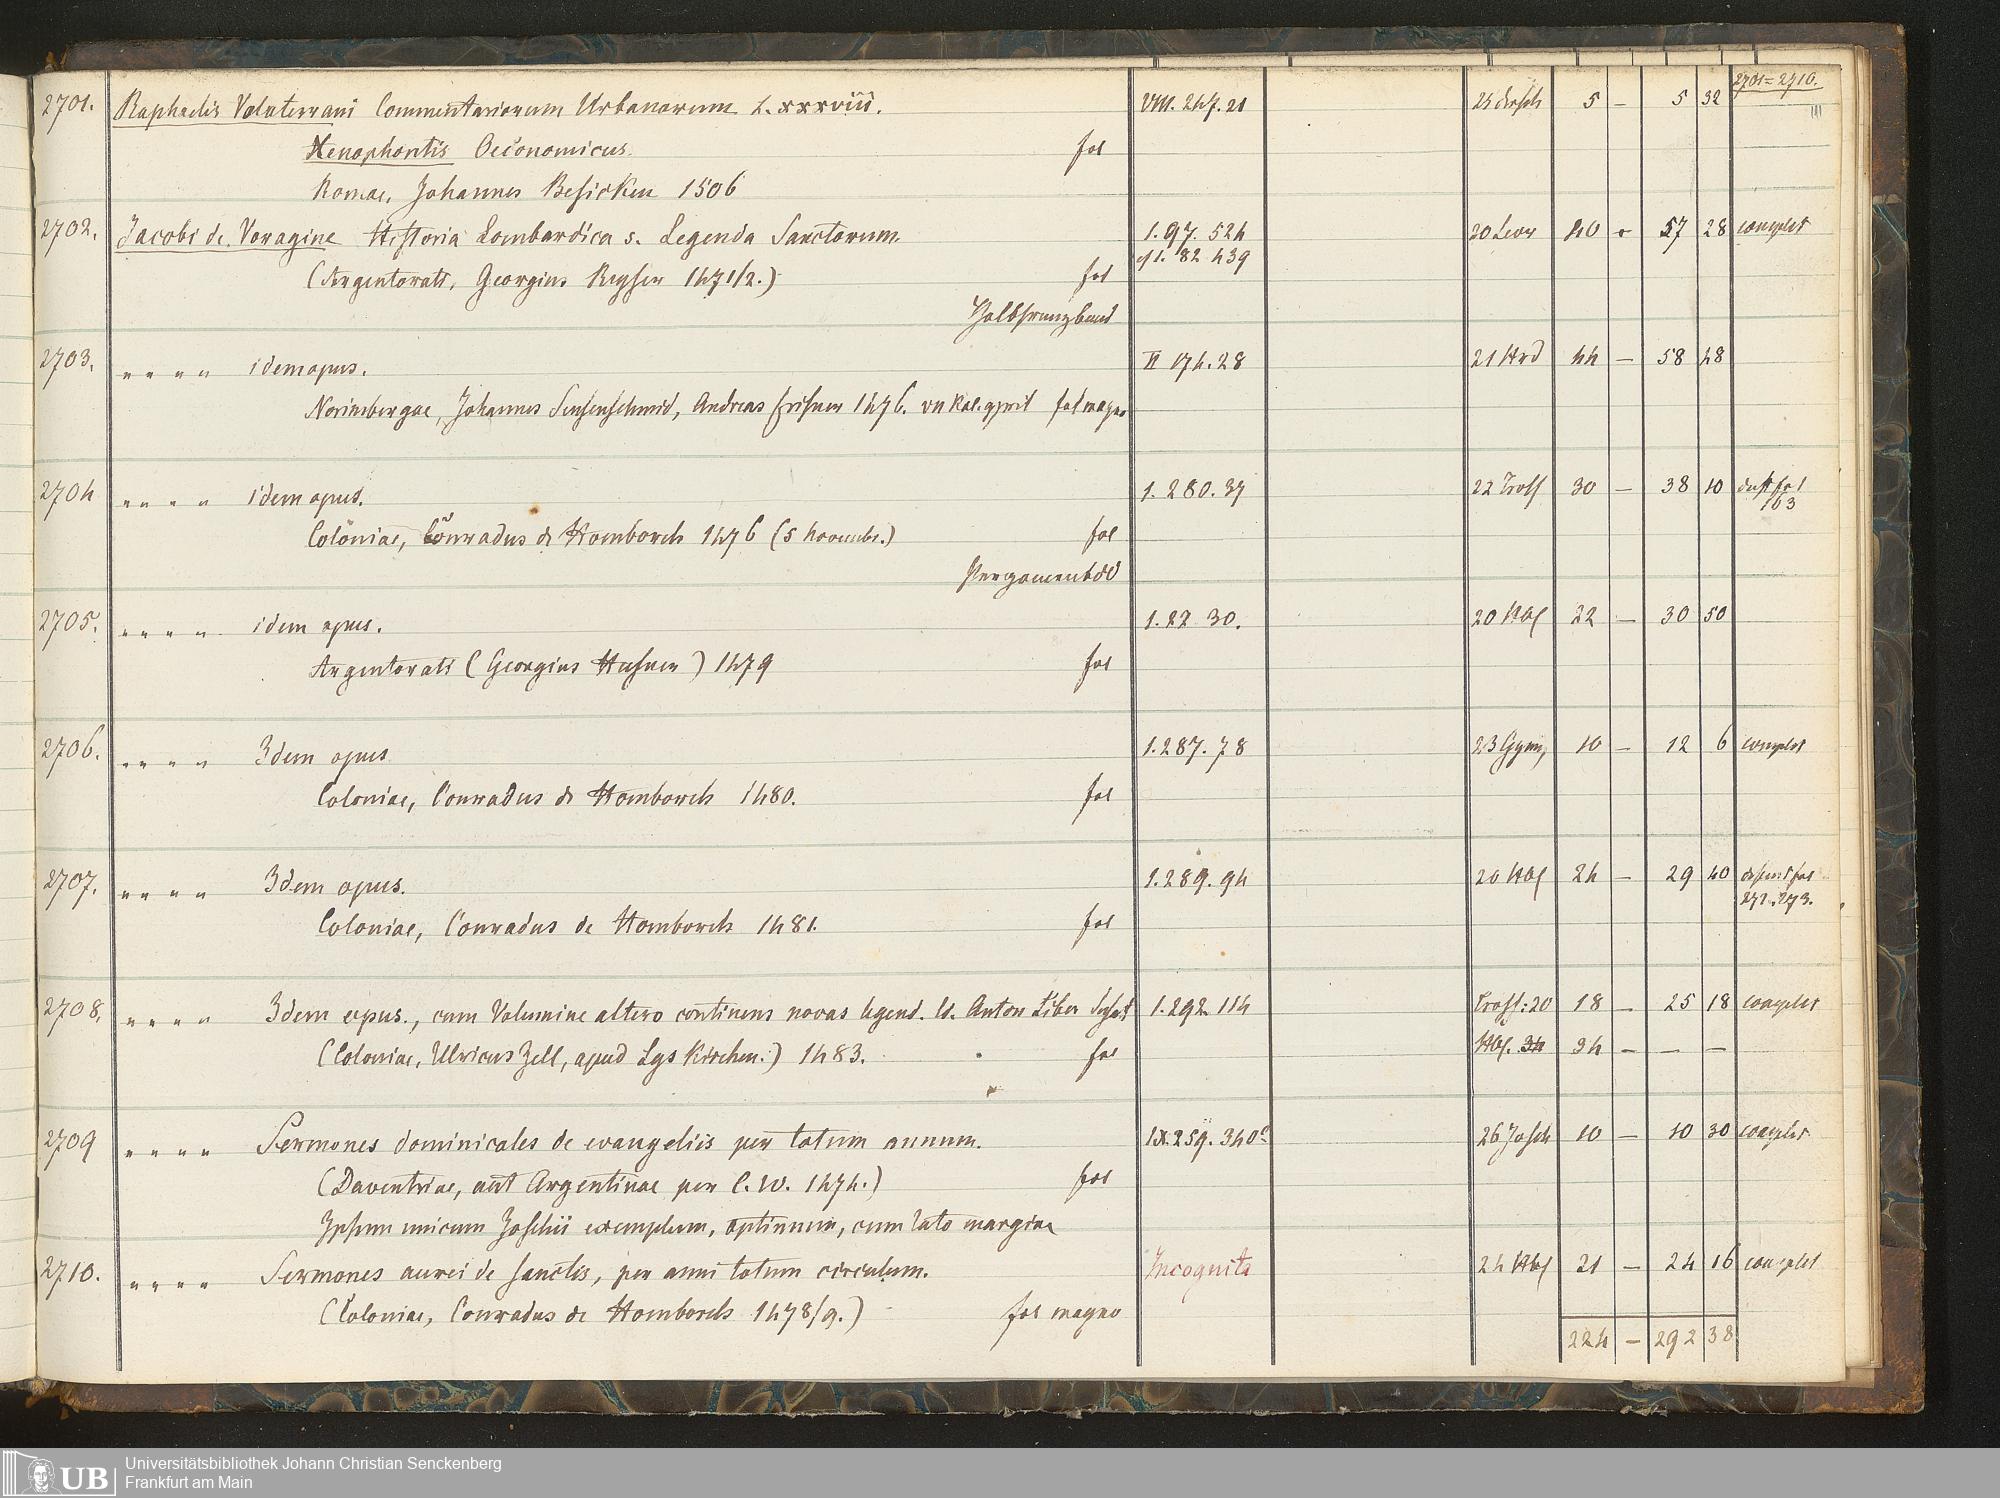 2701=2710.
2701. Raphaelis Volaterrani Commentariorum Urbanorum L. xxxviii. VIII. 247. 21 5 — 5 32
Xenophontis Oeconomicus. fol
Romae, Johannes Besicken 1506
2702. Jacobi de Voragine Historia Lombardica s. Legenda Sanctorum. 1. 97. 524 20 40 - 57 28 complet
cf 1. 82 439
(Argentorati, Georgius Reyser 1471/2.) fol
Halbfranzband
2703. " " " " idem opus. II 174. 28 21 44 — 58 48
Norimbergae, Johannes Sensenschmid, Andreas Frisner 1476. vii Kal. april fol magno
2704 " " " " idem opus. 1. 280. 37 22 Trosf 30 — 38 10 deest fol
163
Coloniae, Conradus de Homborch 1476 (5 Novembr.) fol
Pergamentbd
2705. " " " " idem opus. 1. 22 30. 20 Hbf 22 — 30 50
Argentorati (Georgius Husner) 1479 fol
2706. " " " " Idem opus 1. 287. 78 23 10 — 12 6 complet
Coloniae, Conradus de Homborch 1480. fol
2707. " " " " Idem opus. 1. 289. 94 20 Hbf 24 — 29 40 desunt fol
272. 273.
Coloniae, Conradus de Homborch 1481. fol
2708. " " " " Idem opus., cum Volumine altero continens novas legend. ed. Anton Liber 1. 292 114 Trosf: 20 18 — 25 18 complet
(Coloniae, Ulricus Zell, apud Lys Kirchen.) 1483. fol Hbf. 34 34 — — —
2709 " " " " Sermones dominicales de evangeliis per totum annum. IX. 259. 340 26 Josch 10 — 10 30 complet
(Daventriae, aut Argentinae per C. W. 1474.) fol
Ipsum unicum Joschii exemplum, optimum, cum lato margine
2710. " " " " Sermones aurei de sanctis, per anni totum circulum. Incognita 24 Hbf 21 — 24 16 complet
(Coloniae, Conradus de Homborch 1478/9.) fol magno
224 — 292 38
UB
Universitätsbibliothek Johann Christian Senckenberg
Frankfurt am Main